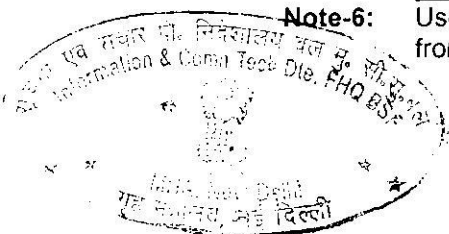 Note-6: Us
fro
एवं संचार प्रौ. निदेशालय बल मु. सी.सु.
Information & Comn Tech Dte. FHQ BSF
MHA, New Delhi
गृह मंत्रालय, नई दिल्ली